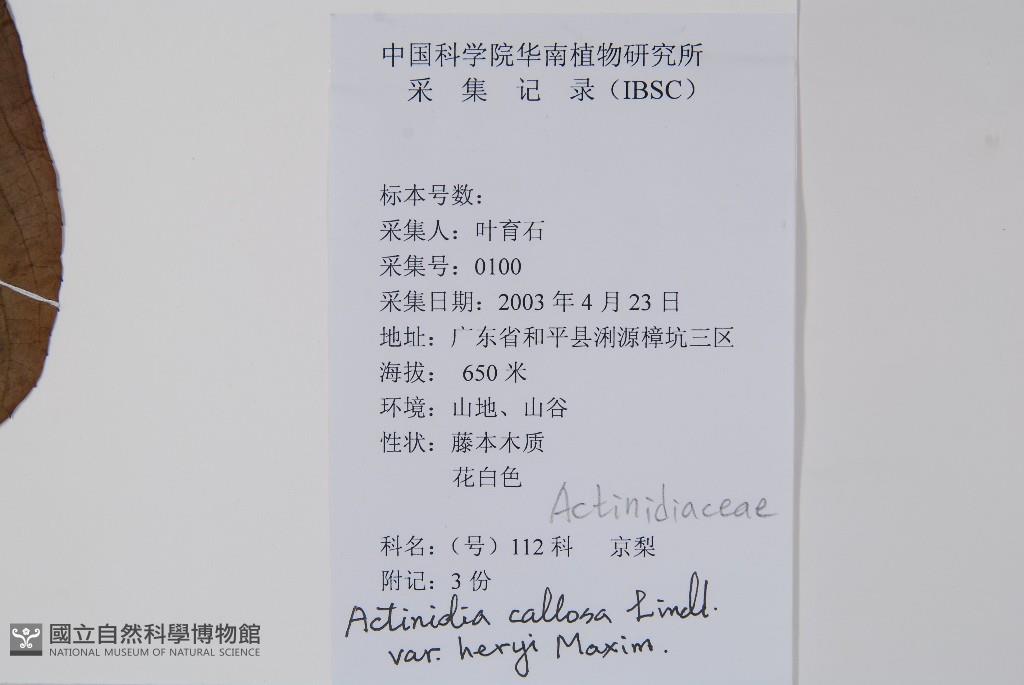 中国科学院华南植物研究所
采 集 记 录（IBSC）
标本号数：
采集人：叶育石
采集号：0100
采集日期：2003 年 4 月 23 日
地址：广东省和平县浰源樟坑三区
海拔： 650 米
环境：山地、山谷
性状：藤本木质
花白色
Actinidiaceae
科名：（号）112 科 京梨
附记：3 份
Actinidia callosa Lindl.
var. heryi Maxim.
國立自然科學博物館
NATIONAL MUSEUM OF NATURAL SCIENCE